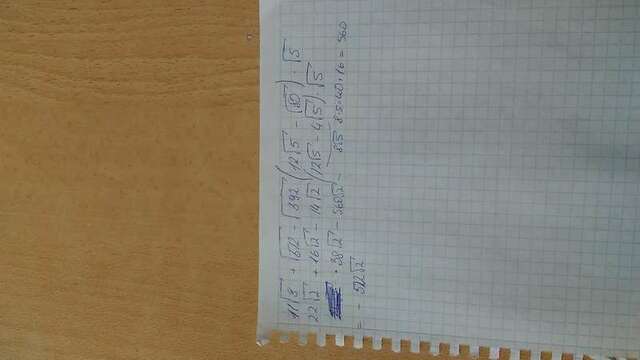 11√8 + √612 - √392 (12√5 - √80) · √5
22√2 + 16√2 - 14√2 (12√5 - 4√5) · √5
38√2 - 560√2 - 8√5 8·5=40·16=560
= - 522√2